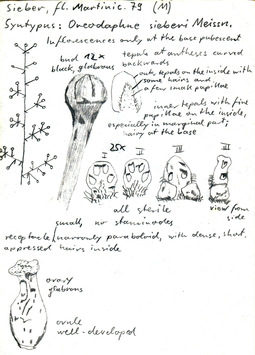 Sieber, fl. Martinic. 79 (M)
Syntypus: Oreodaphne sieberi Meissn.
Inflorescences only at the base pubescent
bud 12x
black, glabrous
tepals at antheses curved
backwards
outer tepals on the inside with
some hairs and
a few small papillae
inner tepals with fine
papillae on the inside,
especially in marginal part;
hairy at the base
25x
I II III IIII
all sterile
small, no staminodes
view from
side
receptacle narrowly paraboloid, with dense, short,
appressed hairs inside
ovary
glabrous
ovule
well-developed